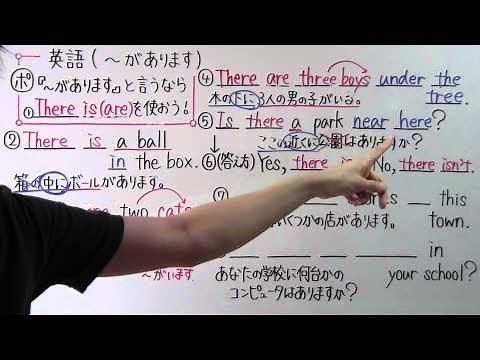 英語(～があります)
ポ『～があります』と言うなら
①There is(are)を使おう!
② There is a ball
in the box.
箱の中にボールがあります。
two cats
～がいます。
④There are three boys under the
tree.
木の下に3人の男の子がいる。
⑤Is there a park near here?
ここの近くに公園はありますか?
⑥(答え方) Yes, there is No, there isn't.
⑦
this
town.
いくつかの店があります。
in
your school?
あなたの学校に何台かの
コンピュータはありますか?